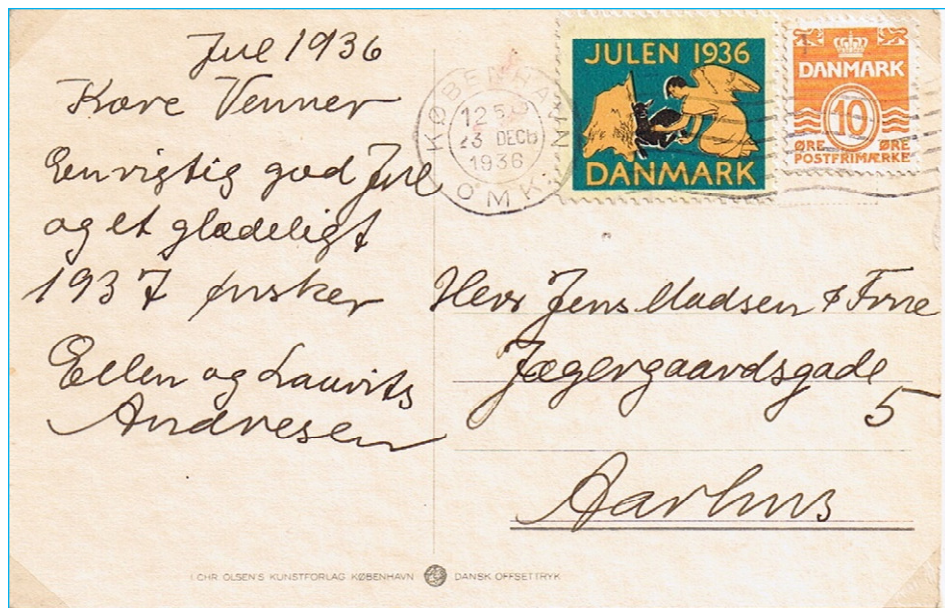 Jul 1936
Kære Venner
En rigtig god Jul
og et glædeligt
1937 ønsker
Ellen og Lauritz
Andresen
KØBENHAVN
23 DECB
1936
OMK.
JULEN 1936
DANMARK
DANMARK
10
ØRE ØRE
POSTFRIMÆRKE
Herr Jens Madsen & Frue
Jægergaardsgade
5
Aarhus
CHR. OLSEN'S KUNSTFORLAG KØBENHAVN DANSK OFFSETTRYK